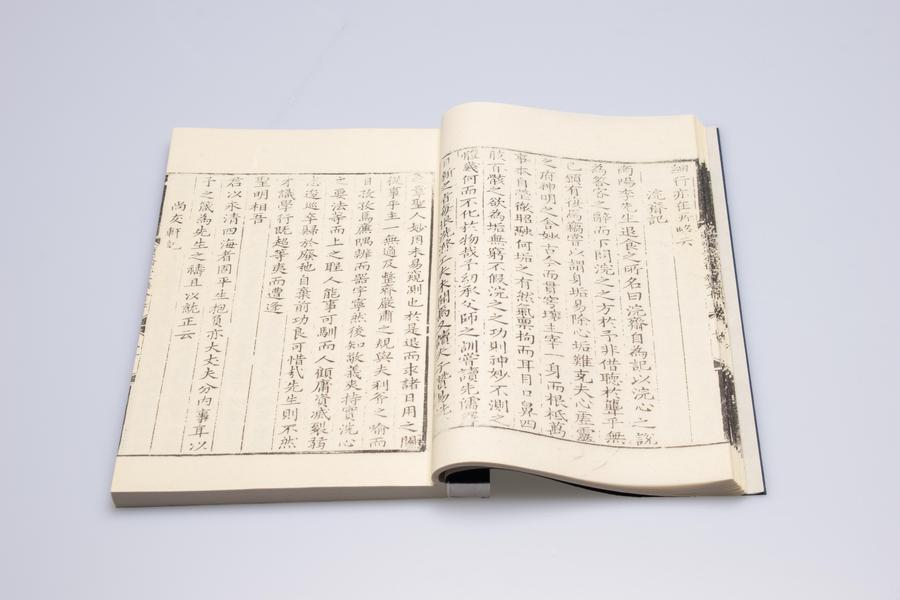 細行亦在所略云
浣齋記
尚陽李先生退食之所名曰浣齋自為記以浣心之說
為答客之辭而下問浣之之方於予非借聽於聾乎無
已頭有俱焉竊嘗以謂身垢易除心垢難克夫心虛靈
之府神明之舍妙古今而貫穹壤主宰一身而根柢萬
事本自瑩徹昭融何垢之有然氣稟拘而耳目口鼻四
肢百骸之欲為垢無窮不假浣之之功則神妙不測之
體幾何而不化於物哉予幼承父師之訓嘗讀先儒
日新之
之章聖人妙用未易窺測也於是退而求諸日用之間
從事乎主一無適及整齊嚴肅之規與夫利斧之喻而
日孜孜焉廉隅辦而器宇寧然後知敬義夾持實洗心
之要法等而上之聖人能事可馴而人顧庸資滅裂弱
志逡巡卒歸於廢弛自棄前功良可惜哉先生則不然
才識學行既超等夷而遭逢
聖明相吾
君以永清四海者固平生抱負亦大丈夫分內事耳以
予之箴為先生之禱且以就正云
尚友軒記